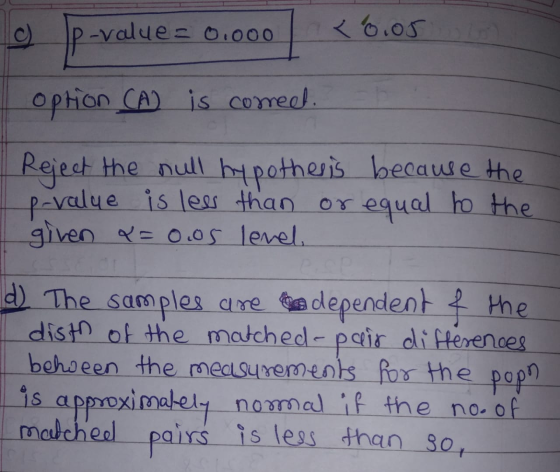 c) p-value = 0.000 < 0.05
option (A) is correct.
Reject the null hypothesis because the
p-value is less than or equal to the
given α = 0.05 level.
d) The samples are dependent & the
distn of the matched-pair differences
between the measurements for the popn
is approximately normal if the no. of
matched pairs is less than 30,